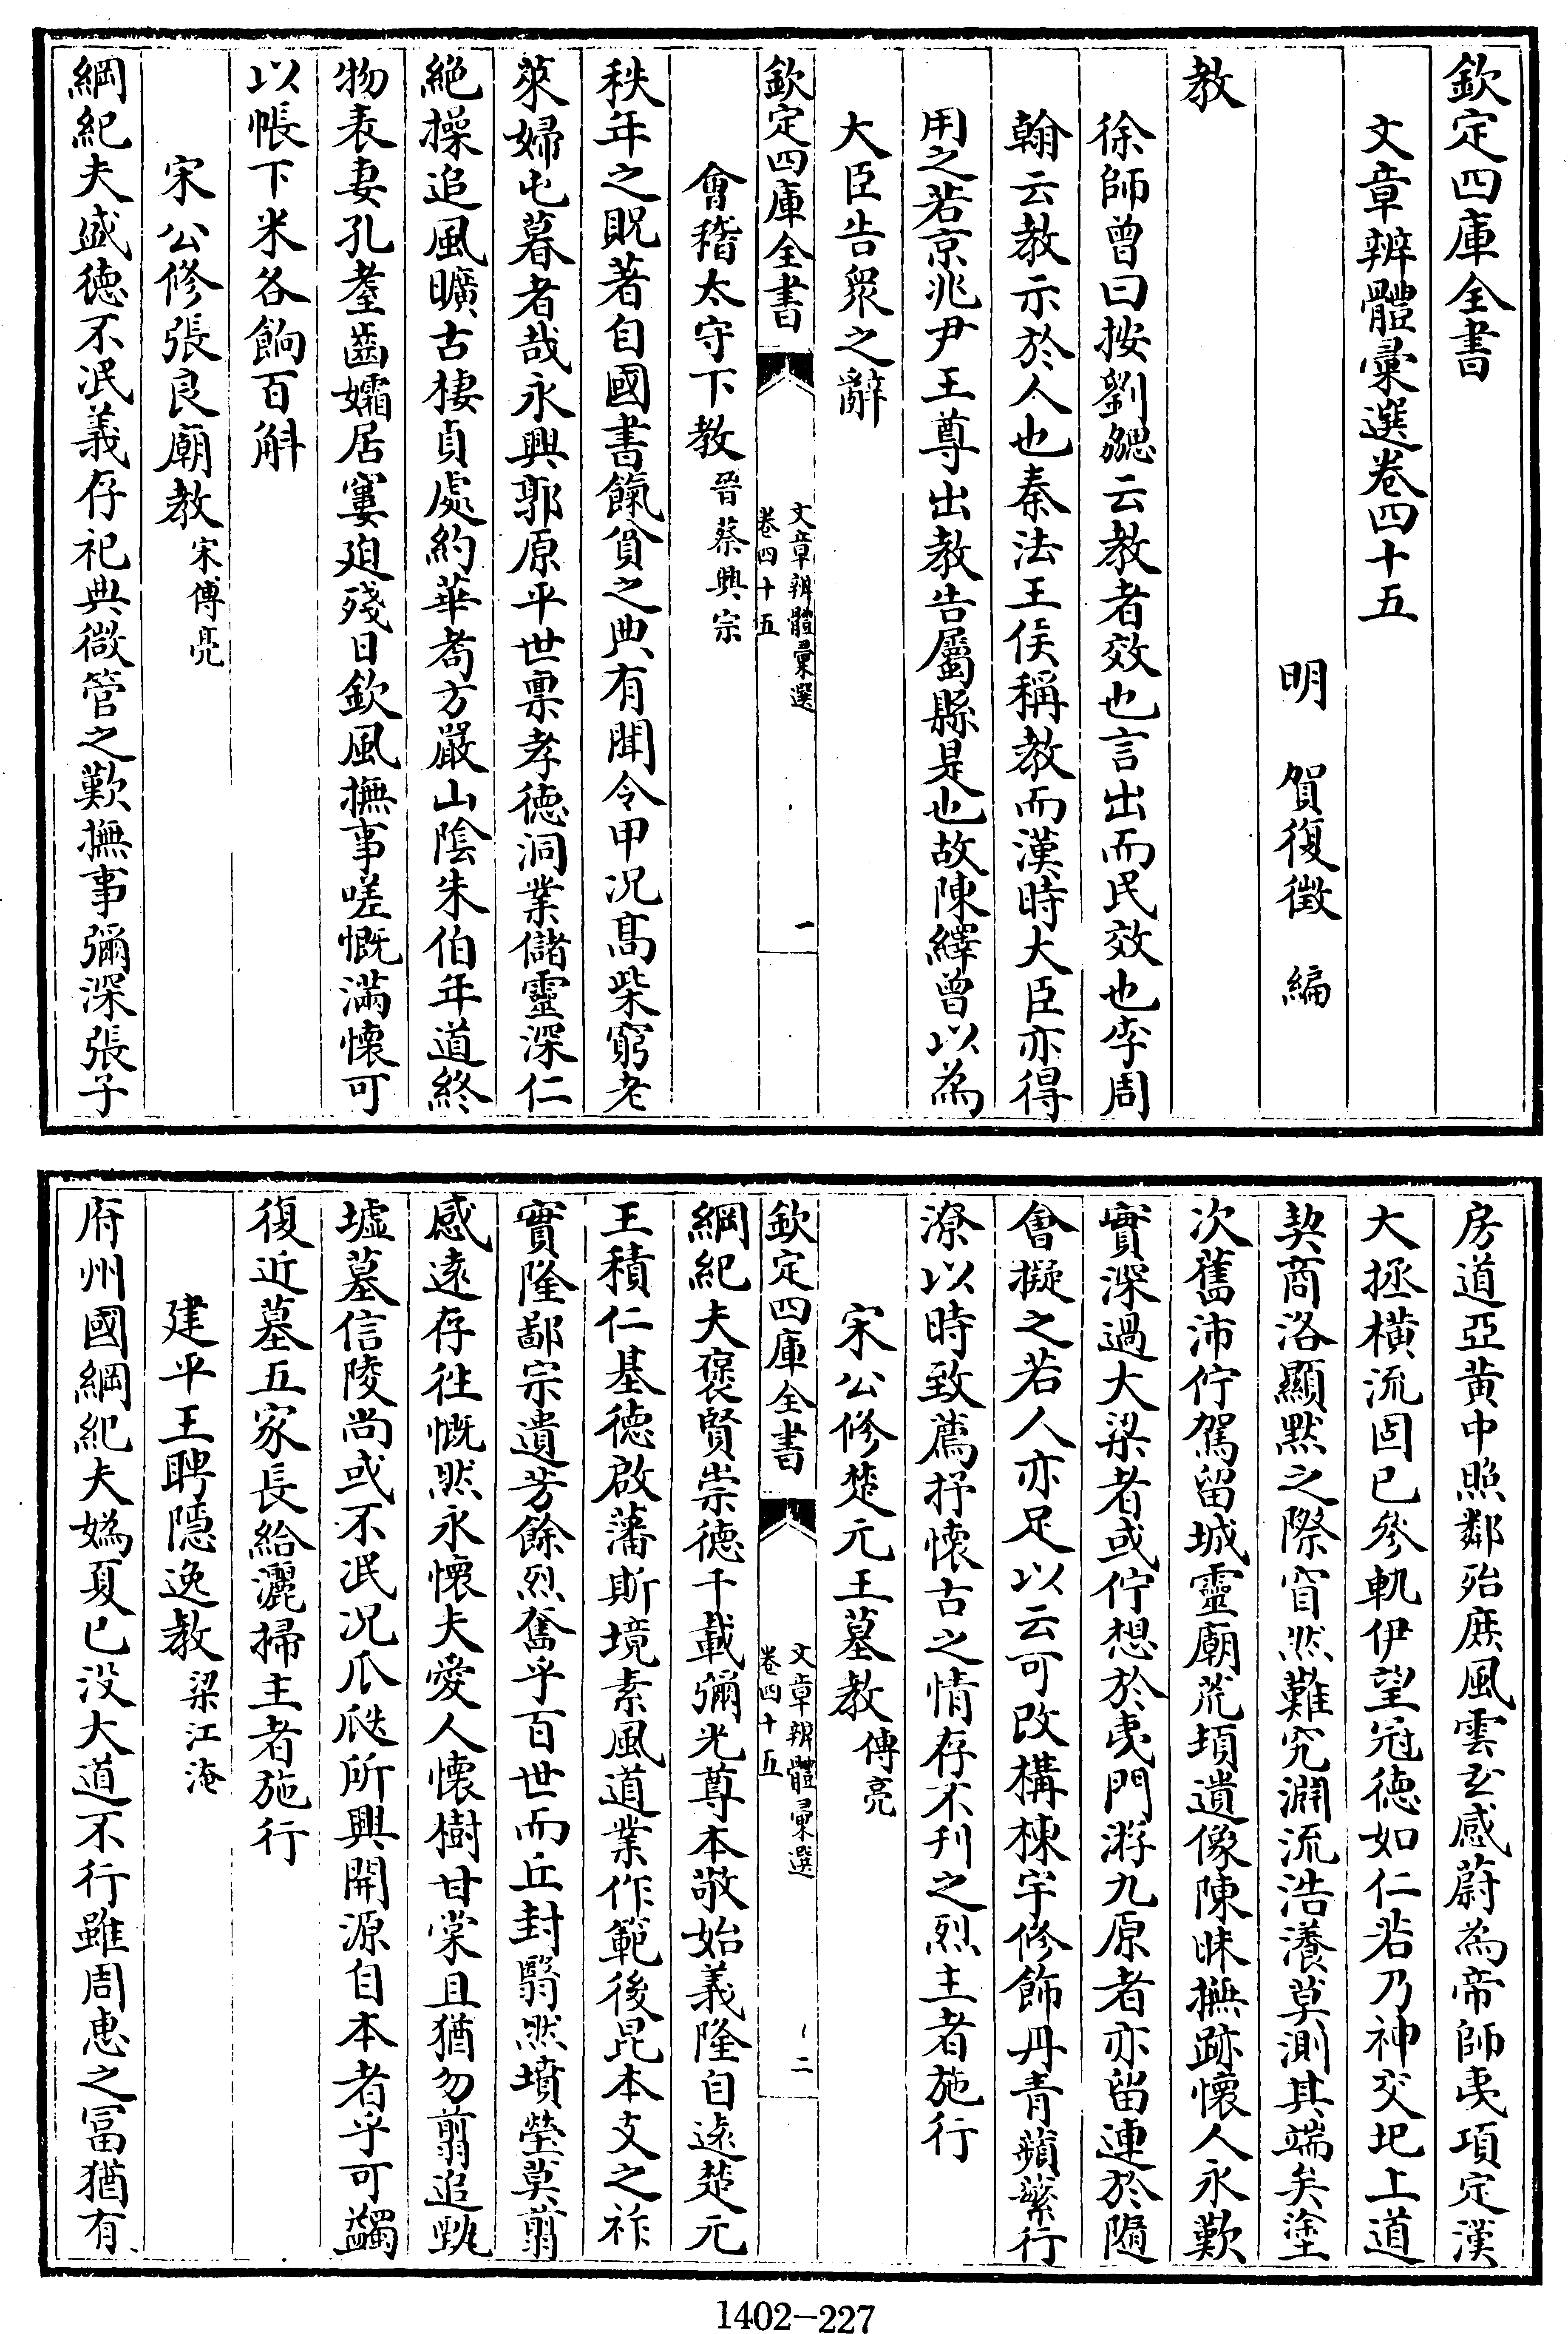 欽定四庫全書
文章辨體彙選卷四十五
明 賀復徵 編
教
徐師曾曰按劉勰云教者效也言出而民效也李周
翰云教示於人也秦法王侯稱教而漢時大臣亦得
用之若京兆尹王尊出教告屬縣是也故陳繹曾以為
大臣告衆之辭
欽定四庫全書
文章辨體彙選
卷四十五
一
會稽太守下教晉蔡興宗
秩年之貺著自國書餼貧之典有聞令甲况髙柴窮老
萊婦屯暮者哉永興郭原平世禀孝徳洞業儲靈深仁
絶操追風曠古棲貞處約華耇方嚴山隂朱伯年道終
物表妻孔耋齒孀居窶廹殘日欽風撫事嗟慨滿懐可
以帳下米各餉百斛
宋公修張良廟教宋傅亮
綱紀夫盛徳不泯義存祀典微管之歎撫事彌深張子
房道亞黄中照鄰殆庶風雲𤣥感蔚為帝師夷項定漢
大拯横流固已參軌伊望冠徳如仁若乃神交圯上道
契商洛顯黙之際窅然難究淵流浩瀁莫測其端矣塗
次舊沛佇駕留城靈廟荒頓遺像陳昧撫跡懐人永歎
實深過大梁者或佇想於夷門游九原者亦留連於隨
會擬之若人亦足以云可改構棟宇修飾丹青蘋蘩行
潦以時致薦抒懐古之情存不刊之烈主者施行
宋公修楚元王墓教傅亮
欽定四庫全書
文章辨體彙選
卷四十五
二
綱紀夫褒賢崇徳千載彌光尊本敬始義隆自逺楚元
王積仁基徳啟藩斯境素風道業作範後昆本支之祚
實隆鄙宗遺芳餘烈奮乎百世而丘封翳然墳塋莫翦
感逺存徃慨然永懐夫愛人懐樹甘棠且猶勿翦追甄
墟墓信陵尚或不泯况瓜瓞所興開源自本者乎可蠲
復近墓五家長給灑掃主者施行
建平王聘隱逸教梁江淹
府州國綱紀夫媯夏已没大道不行雖周惠之富猶有
1402-227